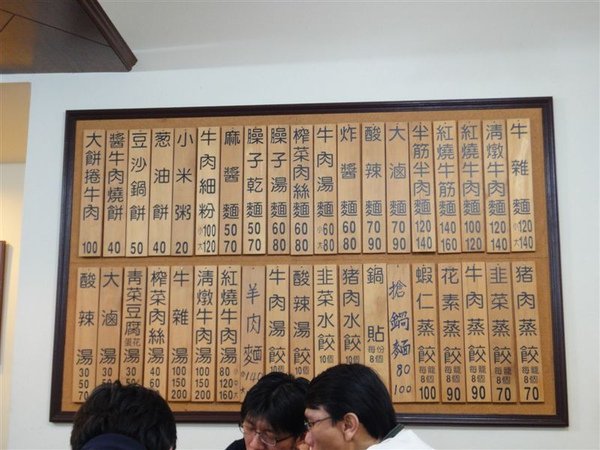 牛雜麵 小120 大140
清燉牛肉麵 120 140
紅燒牛肉麵 120 140
紅燒牛筋麵 140 160
半筋半肉麵 120 140
大滷麵 70 90
酸辣麵 70 90
炸醬麵 60 80
牛肉湯麵 小60 大80
榨菜肉絲麵 60 80
臊子湯麵 50 70
臊子乾麵 50 70
麻醬麵 50 70
牛肉細粉 小100 大120
小米粥 20
葱油餅 40
豆沙鍋餅 50
醬牛肉燒餅 40
大餅捲牛肉 100
豬肉蒸餃 每籠8個 70
韭菜蒸餃 每籠8個 70
牛肉蒸餃 每籠8個 90
花素蒸餃 每籠8個 90
蝦仁蒸餃 每籠8個 100
搶鍋麵 80 100
鍋貼 每份8個
豬肉水餃 10個
韭菜水餃 10個
牛肉湯餃 10個
羊肉麵 140
紅燒牛肉湯 80 120 160
清燉牛肉湯 100 150 200
牛雜湯 100 150 200
榨菜肉絲湯 30 40 50
青菜豆腐蛋花湯 30 40 50
大滷湯 30 50 70
酸辣湯 30 50 70